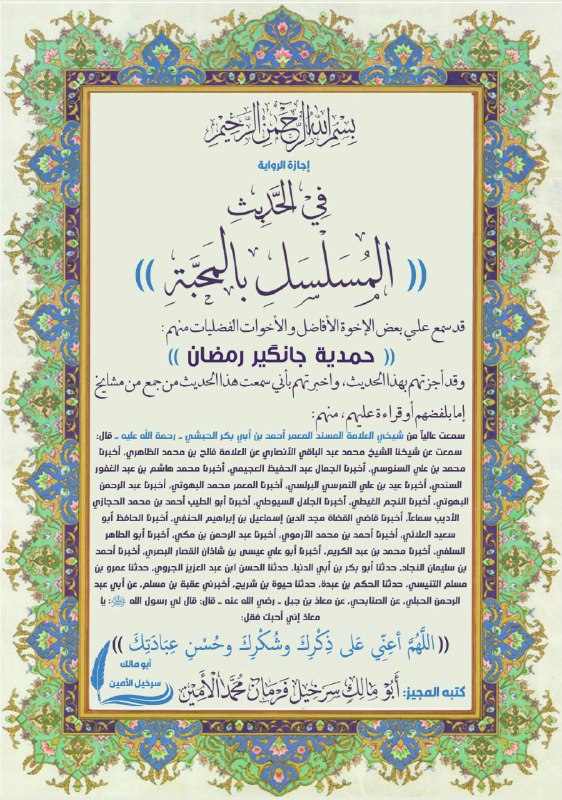 بِسْمِ اللهِ الرَّحْمٰنِ الرَّحِيْمِ
اجازة الرواية
فِي الْحَدِيْثِ
(( المُسَلْسَلِ بالْمَحَبَّةِ ))
قد سمع علي بعض الإخوة الأفاضل والأخوات الفضليات منهم :
(( حمدية جانگير رمضان ))
وقد أجزتهم بهذا الحديث، واخبرتهم بأني سمعت هذا الحديث من جمع من مشايخ
إما بلفضهم أو قراءة عليهم ، منهم:
سمعت عالياً من شيخي العلامة المسند المعمر أحمد بن أبي بكر الحبشي ـ رحمة الله عليه ـ قال:
سمعت عن شيخنا الشيخ محمد عبد الباقي الأنصاري عن العلامة فالح بن محمد الظاهري، أخبرنا
محمد بن علي السنوسي، أخبرنا الجمال عبد الحفيظ العجيمي، أخبرنا محمد هاشم بن عبد الغفور
السندي، أخبرنا عيد بن علي النمرسي البرلسي، أخبرنا المعمر محمد البهوتي، أخبرنا عبد الرحمن
البهوتي، أخبرنا النجم الغيطي، أخبرنا الجلال السيوطي، أخبرنا أبو الطيب أحمد بن محمد الحجازي
الأديب سماعاً، أخبرنا قاضي القضاة مجد الدين إسماعيل بن إبراهيم الحنفي، أخبرنا الحافظ أبو
سعيد العلائي، أخبرنا أحمد بن محمد الأرموي، أخبرنا عبد الرحمن بن مكي، أخبرنا أبو الطاهر
السلفي، أخبرنا محمد بن عبد الكريم، أخبرنا أبو علي عيسى بن شاذان القصار البصري، أخبرنا أحمد
بن سليمان النجاد، حدثنا أبو بكر بن أبي الدنيا، حدثنا الحسن ابن عبد العزيز الجروي، حدثنا عمرو بن
مسلم التنيسي، حدثنا الحكم بن عبدة، حدثنا حيوة بن شريح، أخبرني عقبة بن مسلم، عن أبي عبد
الرحمن الحبلي، عن الصنابحي، عن معاذ بن جبل ـ رضي الله عنه ـ قال: قال لي رسول الله ﷺ: يا
معاذ إني أحبك فقل:
(( اللَّهُمَّ أعِنِّي عَلى ذِكْرِكَ وشُكْرِكَ وحُسْنِ عِبَادَتِكَ ))
أبو مالك
سرحيل الأمين
كتبه المجيز: أَبُوْ مَالِكٍ سَرْحِيْل فَرْمَان مُحَمَّد الْأَمِيْن